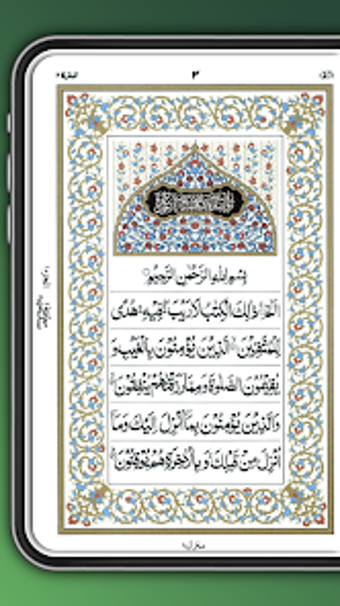 ٣
بِسْمِ اللّٰهِ الرَّحْمٰنِ الرَّحِيْمِ
الٓمّٓ ذٰلِكَ الْكِتٰبُ لَا رَيْبَ فِيْهِ هُدًى
لِّلْمُتَّقِيْنَ الَّذِيْنَ يُؤْمِنُوْنَ بِالْغَيْبِ وَ
يُقِيْمُوْنَ الصَّلٰوةَ وَمِمَّا رَزَقْنٰهُمْ يُنْفِقُوْنَ
وَالَّذِيْنَ يُؤْمِنُوْنَ بِمَاۤ اُنْزِلَ اِلَيْكَ وَمَاۤ
اُنْزِلَ مِنْ قَبْلِكَ وَبِالْاٰخِرَةِ هُمْ يُوْقِنُوْنَ